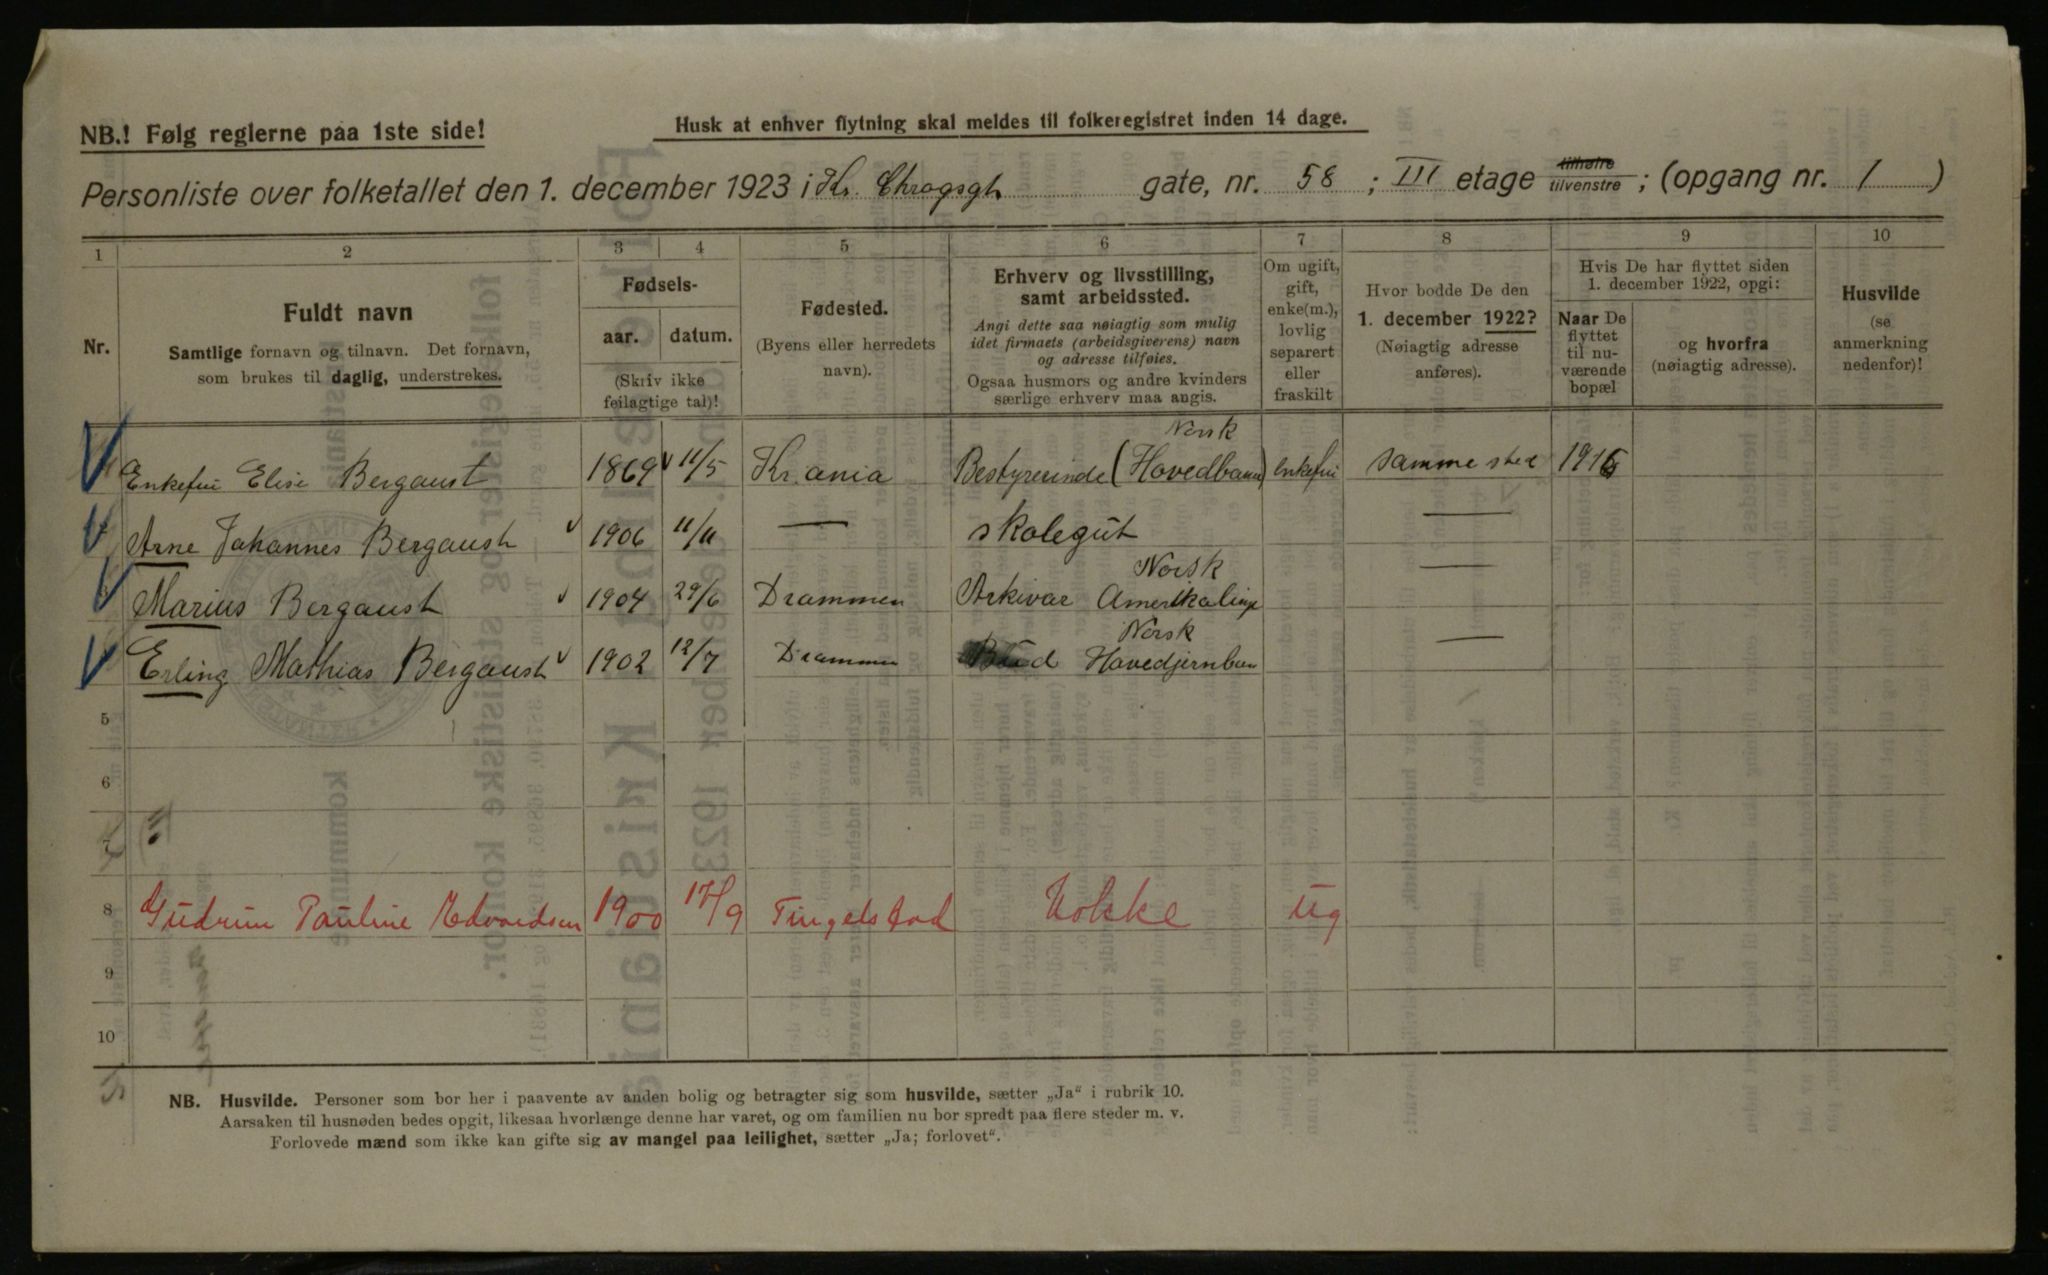 NB.! Følg reglerne paa 1ste side!
Husk at enhver flytning skal meldes til folkeregistret inden 14 dage.
Personliste over folketallet den 1. december 1923 i Kr. gate, nr. 58 ; III etage tilhøire tilvenstre ; (opgang nr. 1 )
1 2 3 4 5 6 7 8 9 10
Nr.
Fuldt navn
Samtlige fornavn og tilnavn. Det fornavn,
som brukes til daglig, understrekes.
Fødsels-
aar. datum.
(Skriv ikke
feilagtige tal)!
Fødested.
(Byens eller herredets
navn).
Erhverv og livsstilling,
samt arbeidssted.
Angi dette saa nøiagtig som mulig
idet firmaets (arbeidsgiverens) navn
og adresse tilføies.
Ogsaa husmors og andre kvinders
særlige erhverv maa angis.
Om ugift,
gift,
enke(m.),
lovlig
separert
eller
fraskilt
Hvor bodde De den
1. december 1922?
(Nøiagtig adresse
anføres).
Hvis De har flyttet siden
1. december 1922, opgi:
Naar De
flyttet
til nu-
værende
bopæl
og hvorfra
(nøiagtig adresse).
Husvilde
(se
anmerkning
nedenfor)!
Norsk
Enkefru Elise Bergaust 1869 11/5 Kr.ania Bestyrerinde (Hovedbane) enkefru samme sted
Arne Johannes Bergaust 1906 11/11 — skolegut —
Norsk
Marius Bergaust 1904 29/6 Drammen Arkivar Amerikalinje —
Norsk
Erling Mathias Bergaust 1902 12/7 Drammen Bud —
5
6
7
8 Gudrun Pauline Edvardsen 1900 17/9 Tingelstad Kokke Ug
9
10
NB. Husvilde. Personer som bor her i paavente av anden bolig og betragter sig som husvilde, sætter „Ja“ i rubrik 10.
Aarsaken til husnøden bedes opgit, likesaa hvorlænge denne har varet, og om familien nu bor spredt paa flere steder m. v.
Forlovede mænd som ikke kan gifte sig av mangel paa leilighet, sætter „Ja; forlovet“.